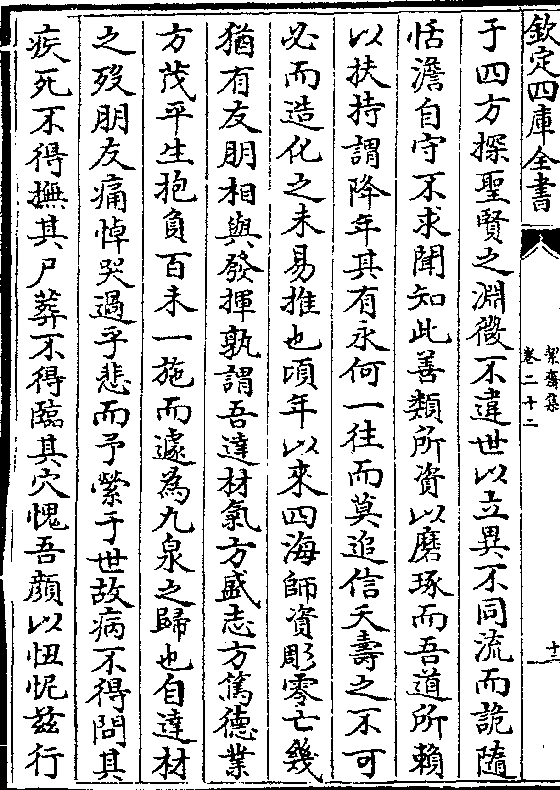 欽定四庫全書
絜齋集
卷二十二
十二
于四方探聖賢之淵微不違世以立異不同流而詭隨
恬澹自守不求聞知此善類所資以磨琢而吾道所賴
以扶持謂降年其有永何一往而莫追信夭壽之不可
必而造化之未易推也頃年以來四海師資彫零亡幾
猶有友朋相與發揮孰謂吾達材氣方盛志方篤德業
方茂平生抱負百未一施而遽為九泉之歸也自達材
之歿朋友痛悼哭過乎悲而予縈于世故病不得問其
疾死不得撫其尸葬不得臨其穴愧吾顔以忸怩兹行